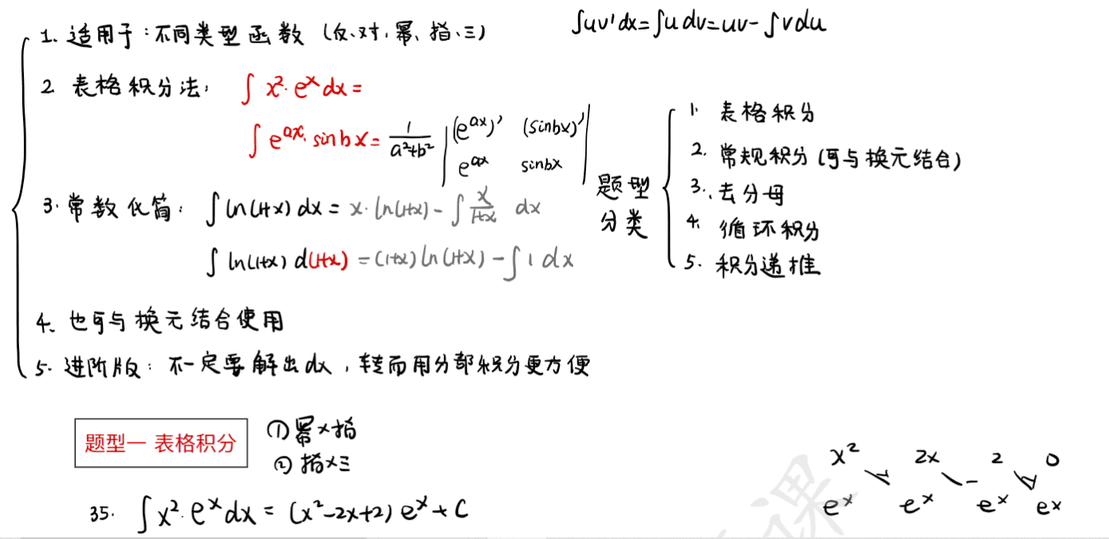 1. 适用于：不同类型函数（反、对、幂、指、三）
∫uv'dx=∫udv=uv-∫vdu
2 表格积分法： ∫x²·eˣdx=
∫e^{ax}·sinbx = 1/(a²+b²) |(e^{ax})' (sinbx)'|
|e^{ax} sinbx|
3. 常数化简： ∫ln(1+x)dx = x·ln(1+x) - ∫x/(1+x) dx
∫ln(1+x)d(1+x) = (1+x)ln(1+x) - ∫1dx
4. 也可与换元结合使用
5. 进阶版：不一定要解出dx，转而用分部积分更方便
题型
分类
1. 表格积分
2. 常规积分（可与换元结合）
3. 去分母
4. 循环积分
5. 积分递推
题型一 表格积分
① 幂×指
② 指×三
35. ∫x²·eˣdx = (x²-2x+2)eˣ+C
x² 2x 2 0
+ - +
eˣ eˣ eˣ eˣ
课